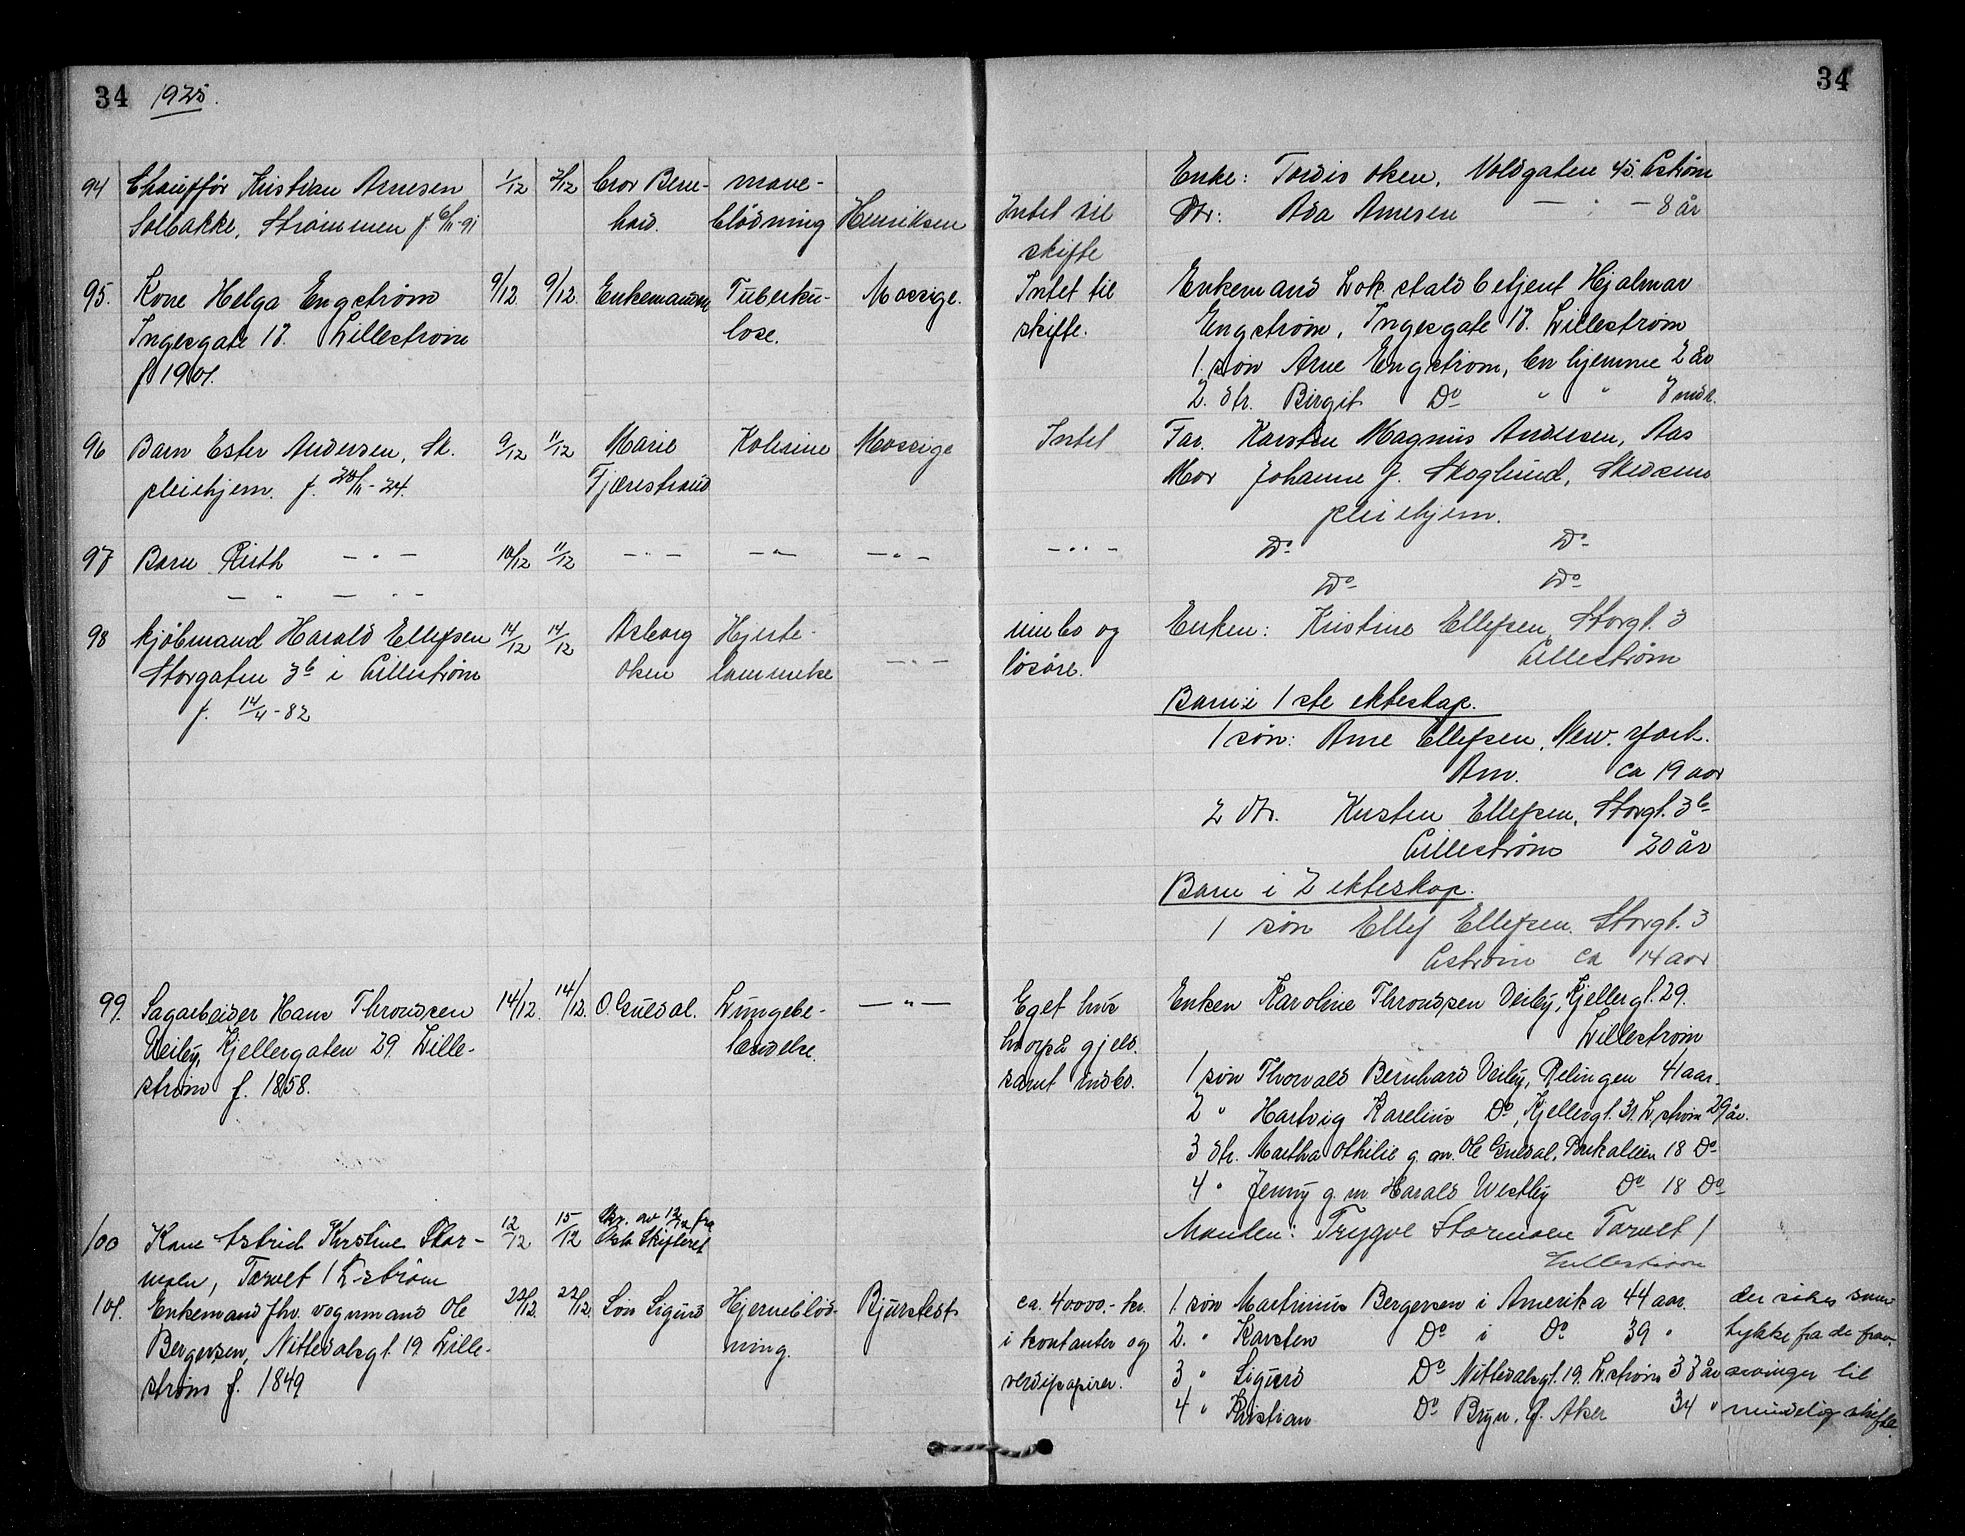 34 1925. 34
94 Chauffør Kristian Arnesen 1/12 2/12 bror Bern- mave- Enke: Tordis Olsen, Voldgaten 45. Lstrøm
Solbakke, Strømmen f 6/11-91 hard. blødning Henriksen Intet til Dtr: Ada Arnesen — " — 8 år
skifte
95. Kone Helga Engstrøm 9/12. 9/12. Enkemannen Tuberku- Mossige. Intet til Enkemand Lok.staldbetjent Hjalmar
Ingesgate 17. Lillestrøm lose. skifte. Engstrøm, Ingesgate 17. Lillestrøm
f 1901. 1. søn Arne Engstrøm, en hjemme 2 år
2. dtr. Birgit Do " " 7 mdr.
96 Barn Ester Andersen, Sk. 9/12 11/12 Marie Kolerine Mossige Intet Far. Karsten Magnus Andersen, Aas
pleiehjem. f. 28/11-24. Fjærestrand Mor Johanne J. Skoglund, Skedsmo
pleiehjem.
97 Barn Ruth — " — 10/12 11/12 — " — — " — — " — — " — Do Do
— " — — " — Do Do
98 Kjøbmand Harald Ellefsen 14/12 14/12 Asborg Hjerte- innbo og Enken: Kristine Ellefsen, Storgt. 3
Storgaten 3b i Lillestrøm Olsen lammelse — " — løsøre. Lillestrøm
f. 14/4-82 Barn i 1ste ekteskap.
1 søn: Arne Ellefsen, New. York.
Am. ca 19 aar
2 dtr. Kirsten Ellefsen, Storgt. 3b
Lillestrøm 20 år
Barn i 2 ekteskap.
1 søn Ellef Ellefsen. Storgt. 3
Lstrøm ca 14 aar
99. Sagarbeider Hans Throndsen 14/12. 14/12. O. Guldal. Lungebe- — " — Eget hus Enken Karoline Throndsen Veiby, Kjellergt. 29.
Veiby, Kjellergaten 29. Lille- tændelse. hvorpå gjeld. Lillestrøm
strøm f. 1858. samt indbo. 1 søn Thorvald Bernhard Veiby, Relingen 41 aar.
2 " Hartvig Karelius Do, Kjellergt. 31. L.strøm 29 år.
3 dtr. Martha Othilie g. m. Ole Guldal, Parkalleen 18 Do
4 " Jenny g. m. Harald Westby Do 18 Do
100 Kone Astrid Kristine Stor- 12/12 15/12 Skr. av 12/12 fra Oslo Skifteret Manden: Trygve Stormoen Torvet 1
moen, Torvet 1 L-strøm Lillestrøm
101. Enkemand fhv. vognmand Ole 22/12. 22/12. Søn Sigurd Hjerneblød- Bjurstedt ca. 40000.- kr. 1. søn Martinius Bergersen i Amerika 44 aar. der søkes sam-
Bergersen, Nittedalsgt. 19. Lille- ning. i kontanter og 2. " Karsten Do i Do 39 " tykke fra de frav-
strøm f. 1849 verdipapirer. 3 " Sigurd Do Nittedalsgt. 19. L.strøm 37 år arvinger til
4 " Kristian Do Bryn, Ø. Aker 34 " mindelig skifte.